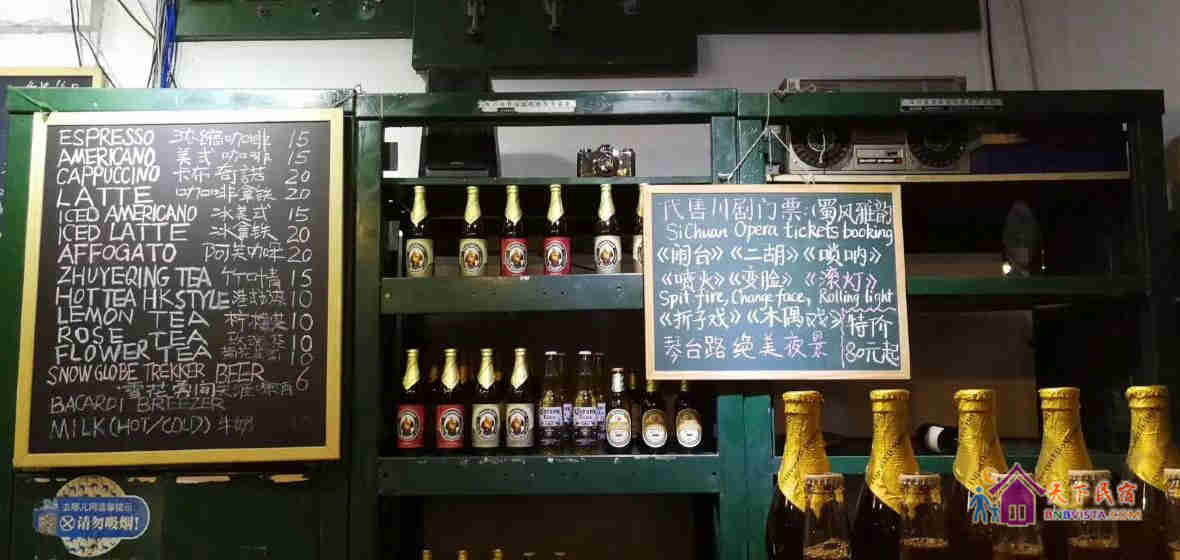 ESPRESSO 浓缩咖啡 15
AMERICANO 美式咖啡 15
CAPPUCCINO 卡布奇诺 20
LATTE 咖啡拿铁 20
ICED AMERICANO 冰美式 15
ICED LATTE 冰拿铁 20
AFFOGATO 阿芙咖啡 20
ZHUYEQING TEA 竹叶情 15
HOT TEA HK STYLE 10
LEMON TEA 柠檬茶 10
ROSE TEA 玫瑰茶 10
FLOWER TEA 10
SNOW GLOBE TREKKER BEER 6
BACARDI BREEZER
MILK (HOT/COLD) 牛奶
去哪儿网温馨提示
请勿吸烟!
代售川剧门票:(蜀风雅韵
SiChuan Opera tickets booking
《闹台》《二胡》《唢呐》
《喷火》《变脸》《滚灯》
Spit fire, Change face, Rolling light
《折子戏》《木偶戏》特价
琴台路 绝美夜景 80元起
Corona
天下民宿
BNBVISTA.COM